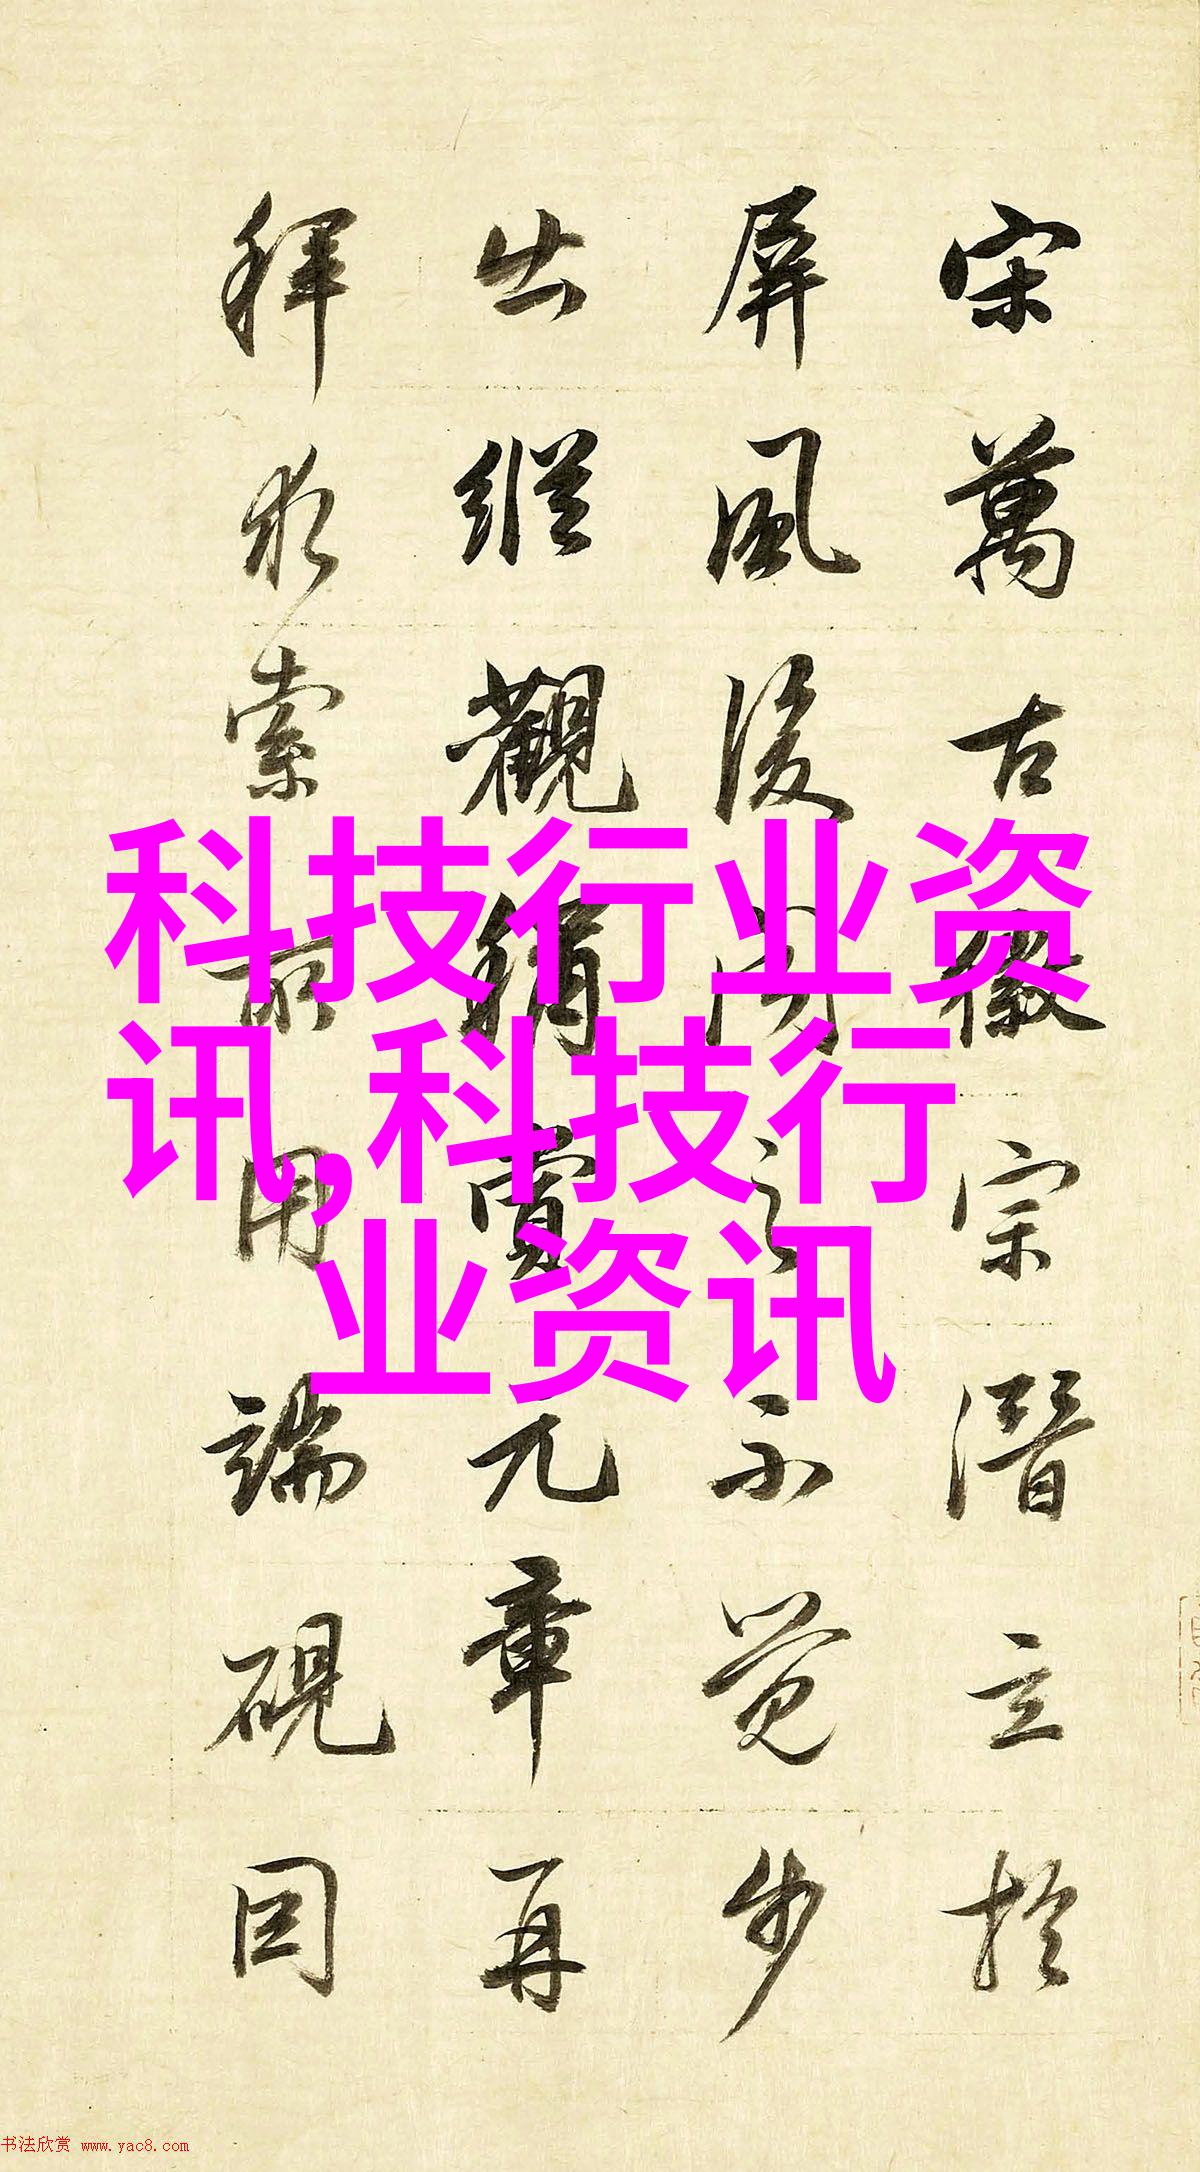 宋萬古徽宗潛立於
屏風後之不覺步
出縱觀稱賞元章再
拜求索所用端硯因
科技行业资
讯,科技行
业资讯
书法欣赏 www.yac8.com